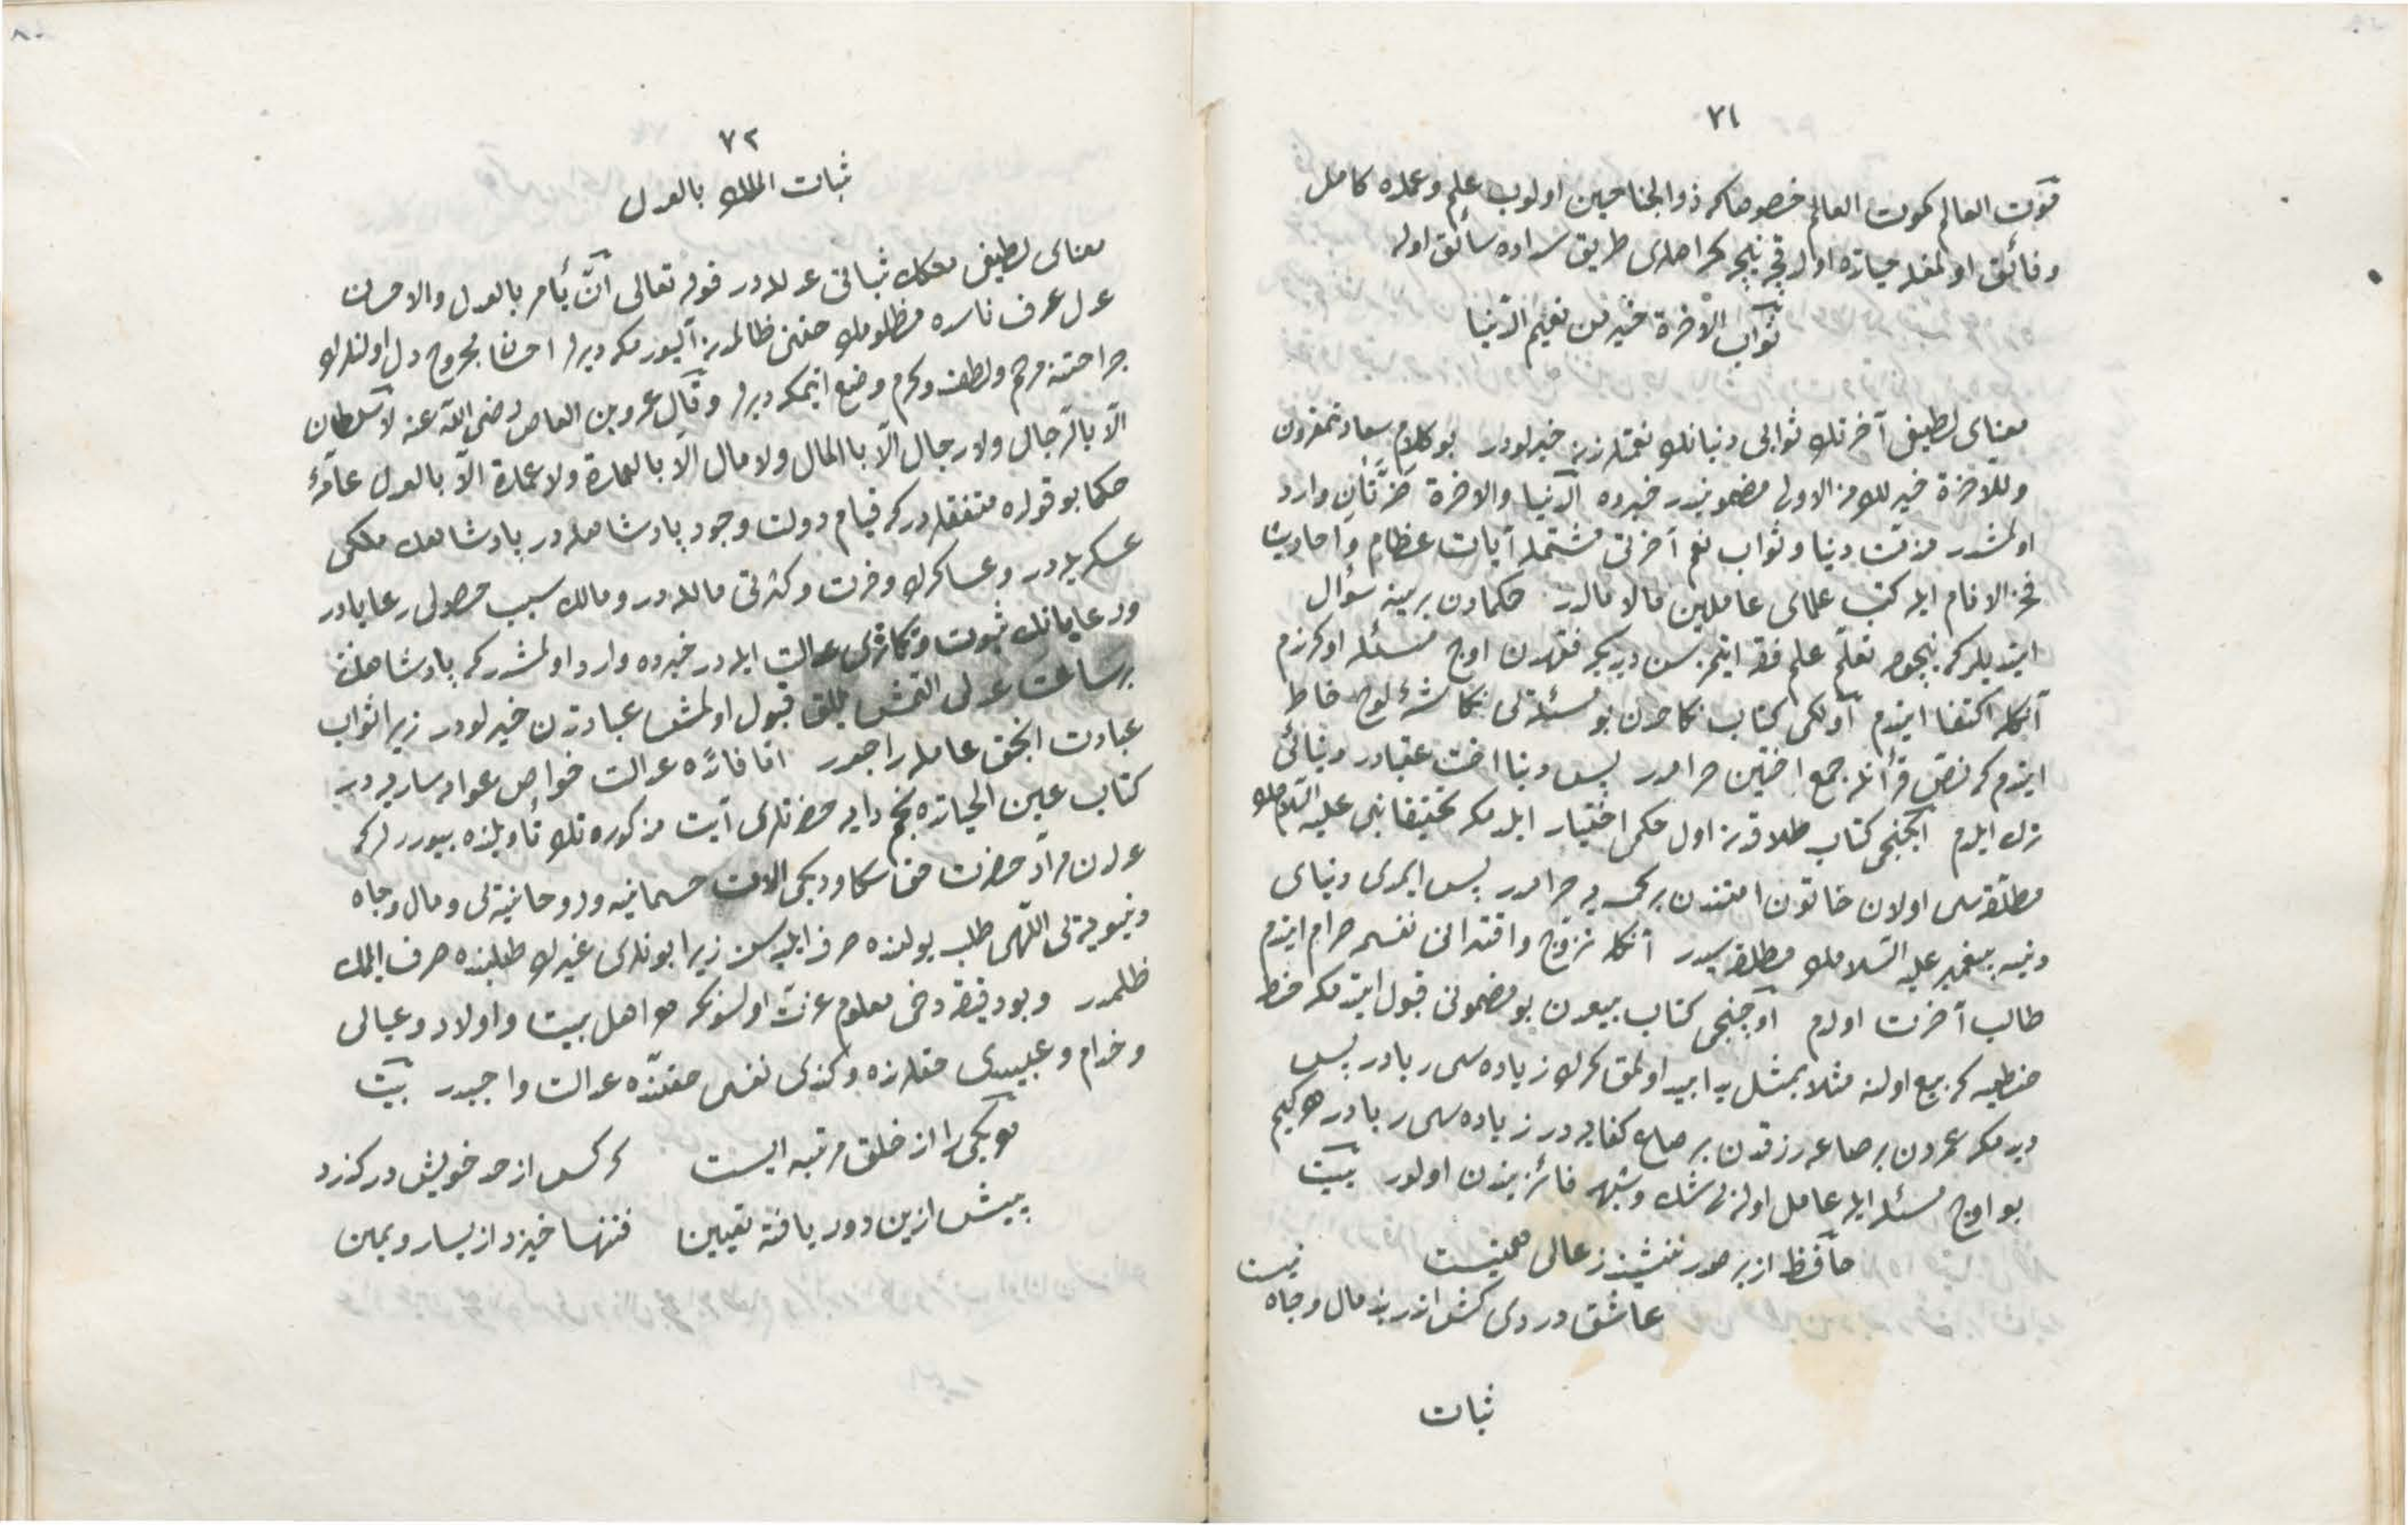 ٧١
قوت العالم كموت العالم خصوصا كه ذو الجناحين اولوب علم وعملده كامل
وفائق اولمغله حياتده اولدقجه نيجه كمراهلرى طريق سداده سائق اولر
ثواب الآخرة خير من نعيم الدنيا
معناى لطيفى آخرتك ثوابى دنيانك نعمتلرندن خيرلودر بو كلام سعادتمقرون
وللآخرة خير لك من الاولى مضمونيدر خبرده الدنيا والاخرة ضرتان وارد
اولمشدر مذمت دنيا وثواب نعم آخرتى مشتمل آيات عظام واحاديث
فخر الانام ايله كتب علماى عاملين مالامالدر حكمادن برينه سؤال
ايتديلر كه نيجون تعلم علم فقه ايتمزسن ديديكه فقهدن اوج مسئله اوكرندم
آنكله اكتفا ايتدم اولكى كتاب نكاحدن بو مسئله‌ى نكاشتهٔ لوح خاطر
ايتدم كه نص قرآنله جمع اختين حرامدر پس دنيا اخت عقبادر دنيائى
ترك ايلدم ايكنجى كتاب طلاقدن اول حكمى اختيار ايلدمكه تحقيقا نبى عليه السلامك
مطلقه‌سى اولان خاتون امتندن بر كمسه‌يه حرامدر پس ايمدى دنياى
دنيه پيغمبر عليه السلامك مطلقه‌سيدر آنكله تزوج واقتدانى نفسمه حرام ايتدم
طالب آخرت اولدم اوچنجى كتاب بيعدن بو مضمونى قبول ايتدمكه حنطه
حنطه‌يه كه بيع اولنه مثلا بمثل يدا بيد اولمق كرك زياده‌سى ربادر پس
ديدمكه عمردن بر صاعه رزقدن بر صاع كفايه‌در زياده‌سى ربادر هر كيم
بو اوج مسئله ايله عامل اولرلى شك وشبهه فائزيندن اولور بيت
حافظ از بر صدر ننشيند ز عالى همتيست
عاشق دردى كش اندر بند مال وجاه نيست
ثبات
٧٢
ثبات الملك بالعدل
معناى لطيفى ملكك ثباتى عدلله‌در قوله تعالى ان يأمر بالعدل والاحسن
عدل عرف ناسده مظلومك حقنى ظالمدن آليورمكه ديرلر احسان مجروح دل اولنلرك
جراحتنه مرهم ولطف وكرم وضع ايتمكه ديرلر وقال عمرو بن العاص رضى الله عنه لا سلطان
الا بالرجال ولا رجال الا بالمال ولا مال الا بالعمارة ولا عمارة الا بالعدل عامهٔ
حكما بو قولده متفقلردر كه قيام دولت وجود پادشاهله‌در پادشاهك ملكى
عسكريله‌در وعساكرك وفرت وكثرتى مالله‌در ومالك سبب حصولى رعايادر
ورعايانك ثبوت وتكاثرى عدالت ايله‌در خبرده وارد اولمشدر كه پادشاهلرك
بر ساعت عدلى التمش ييللق قبول اولمش عبادتدن خيرلودر زيرا ثواب
عبادت انجق عامله راجعدر اما فائدهٔ عدالت خواص وعوامه ساريه‌در
كتاب عين الحياتده نجم دايه حضرتلرى آيت مذكوره‌نك تأويلنده بيوررلر كه
عدلدن مراد حضرت حق سكا ويرديكى آلات جسمانيه وروحانيه‌ى ومال وجاه
دنيويه‌ى اللهى طلب يولنده صرف ايليه‌سن زيرا بونلرى غيرك طلبنده صرف ايلمك
ظلمدر وبو دقيقه دخى معلوم عزت اولسونكه هر اهل بيت واولاد وعيالى
وخدام وعبيدى حقلرنده وكندى نفسى حقنده عدالت واجبدر بيت
هر يكى را از خلق مرتبه ايست كر كس از حد خويش دركذرد
پيش ازين دور يافته تعيين فتنها خيزد از يسار ويمين